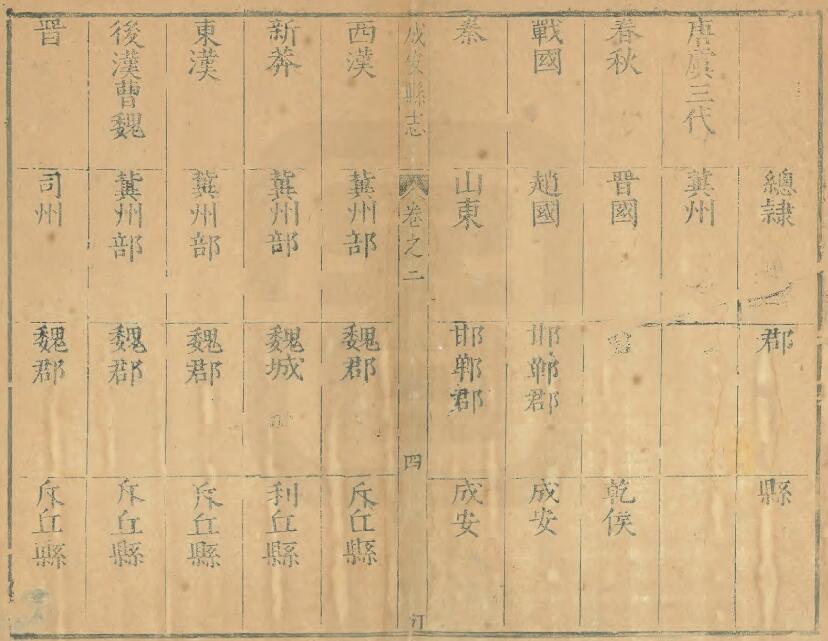 總隸 郡 縣
唐虞三代 冀州
春秋 晉國 乾侯
戰國 趙國 邯鄲郡 成安
秦 山東 邯鄲郡 成安
成安縣志 卷之二 四
西漢 冀州部 魏郡 斥丘縣
新莽 冀州部 魏城 利丘縣
東漢 冀州部 魏郡 斥丘縣
後漢曹魏 冀州部 魏郡 斥丘縣
晉 司州 魏郡 斥丘縣